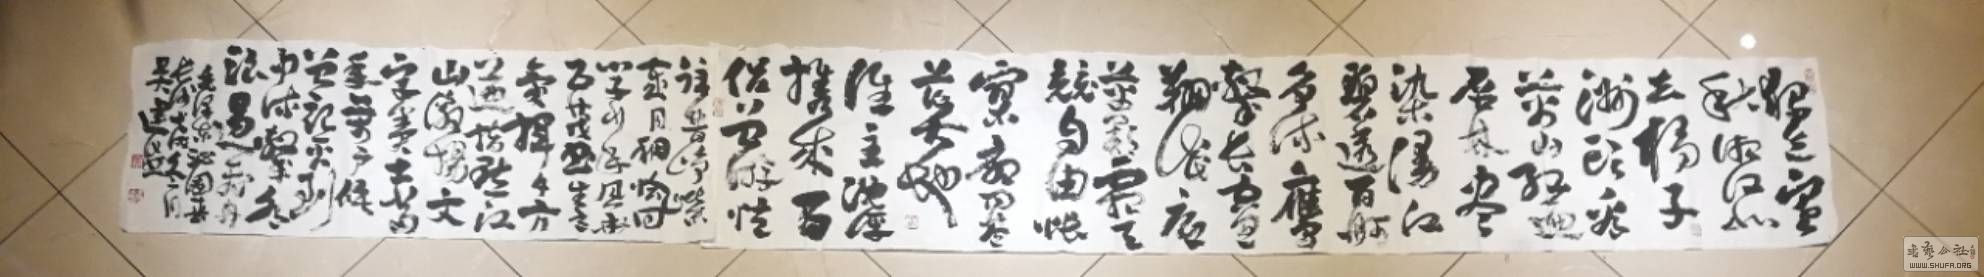 独立寒
秋湘江北
去橘子
洲头看
万山红遍
层林尽
染漫江
碧透百舸
争流鹰
击长空鱼
翔浅底
万类霜天
竞自由怅
寥廓问苍
茫大地
谁主沉浮
携来百
侣曾游忆
往昔峥嵘
岁月稠恰同
学少年风华
正茂书生意
气挥斥方
遒指点江
山激扬文
字粪土当
年万户侯
曾记否到
中流击水
浪遏飞舟
毛泽东沁园春
长沙
吴建
书艺公社
WWW.SHUFA.ORG